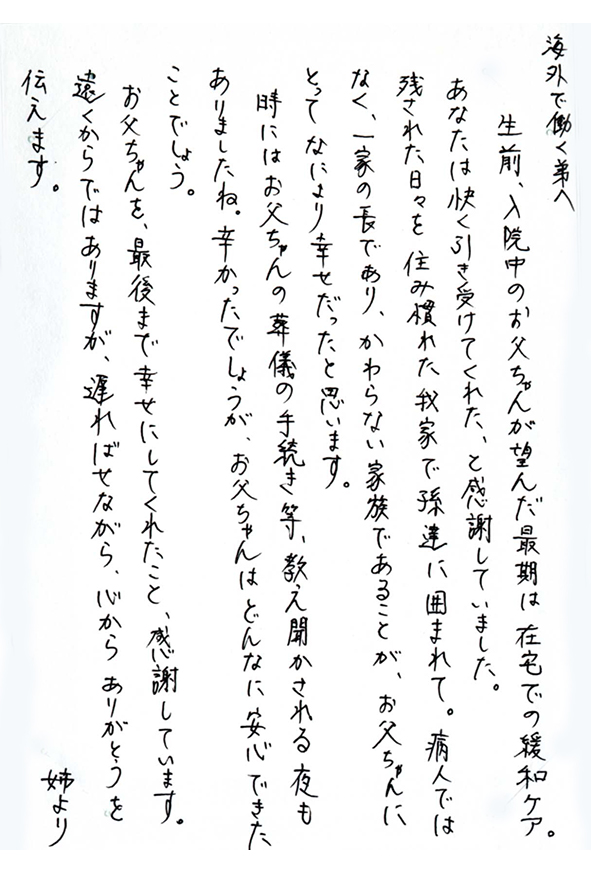 海外で働く弟へ
生前、入院中のお父ちゃんが望んだ最期は在宅での緩和ケア。
あなたは快く引き受けてくれた、と感謝していました。
残された日々を住み慣れた我家で孫達に囲まれて。病人では
なく、一家の長であり、かわらない家族であることが、お父ちゃんに
とってなにより幸せだったと思います。
時にはお父ちゃんの葬儀の手続き等、教え聞かされる夜も
ありましたね。辛かったでしょうが、お父ちゃんはどんなに安心できた
ことでしょう。
お父ちゃんを、最後まで幸せにしてくれたこと、感謝しています。
遠くからではありますが、遅ればせながら、心からありがとうを
伝えます。
姉より